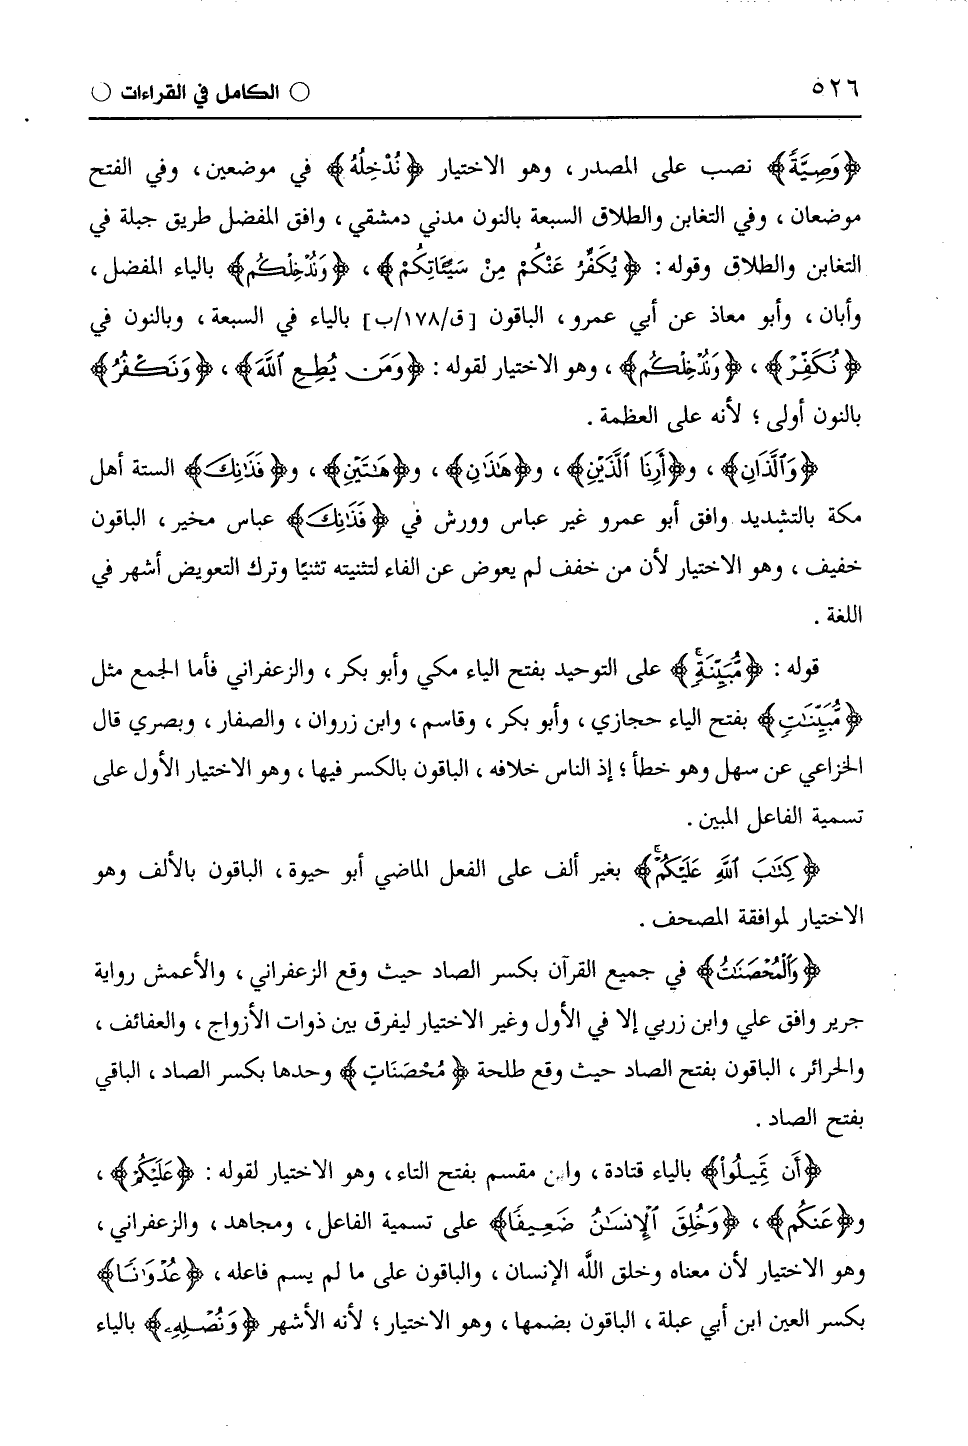 ٥٢٦ ○ الكامل في القراءات ○
﴿وَصِيَّةً﴾ نصب على المصدر، وهو الاختيار ﴿نُدْخِلْهُ﴾ في موضعين، وفي الفتح
موضعان، وفي التغابن والطلاق السبعة بالنون مدني دمشقي، وافق المفضل طريق جبلة في
التغابن والطلاق وقوله: ﴿يُكَفِّرُ عَنْكُمْ مِنْ سَيِّئَاتِكُمْ﴾، ﴿وَنُدْخِلْكُم﴾ بالياء المفضل،
وأبان، وأبو معاذ عن أبي عمرو، الباقون [ق/١٧٨/ب] بالياء في السبعة، وبالنون في
﴿نُكَفِّرْ﴾، ﴿وَنُدْخِلْكُم﴾، وهو الاختيار لقوله: ﴿وَمَن يُطِعِ ٱللَّهَ﴾، ﴿وَنَكْفُرُ﴾
بالنون أولى؛ لأنه على العظمة.
﴿وَٱلَّذَانِ﴾، و﴿أَرِنَا ٱلَّذَيْنِ﴾، و﴿هَٰذَانِ﴾، و﴿هَٰتَيْنِ﴾، و﴿فَذَٰنِكَ﴾ الستة أهل
مكة بالتشديد وافق أبو عمرو غير عباس وورش في ﴿فَذَٰنِكَ﴾ عباس مخير، الباقون
خفيف، وهو الاختيار لأن من خفف لم يعوض عن الفاء لتثنيته تثنيًا وترك التعويض أشهر في
اللغة.
قوله: ﴿مُّبَيِّنَةٍ﴾ على التوحيد بفتح الياء مكي وأبو بكر، والزعفراني فأما الجمع مثل
﴿مُّبَيِّنَٰتٍ﴾ بفتح الياء حجازي، وأبو بكر، وقاسم، وابن زروان، والصفار، وبصري قال
الخزاعي عن سهل وهو خطأ؛ إذ الناس خلافه، الباقون بالكسر فيها، وهو الاختيار الأول على
تسمية الفاعل المبين.
﴿كِتَٰبَ ٱللَّهِ عَلَيْكُمْ﴾ بغير ألف على الفعل الماضي أبو حيوة، الباقون بالألف وهو
الاختيار لموافقة المصحف.
﴿وَٱلْمُحْصَنَٰتُ﴾ في جميع القرآن بكسر الصاد حيث وقع الزعفراني، والأعمش رواية
جرير وافق علي وابن زربي إلا في الأول وغير الاختيار ليفرق بين ذوات الأزواج، والعفائف،
والحرائر، الباقون بفتح الصاد حيث وقع طلحة ﴿مُحْصَنَاتٍ﴾ وحدها بكسر الصاد، الباقي
بفتح الصاد.
﴿أَن تَمِيلُوا۟﴾ بالياء قتادة، وابن مقسم بفتح التاء، وهو الاختيار لقوله: ﴿عَلَيْكُمْ﴾،
و﴿عَنكُم﴾، ﴿وَخُلِقَ ٱلْإِنسَٰنُ ضَعِيفًا﴾ على تسمية الفاعل، ومجاهد، والزعفراني،
وهو الاختيار لأن معناه وخلق اللَّه الإنسان، والباقون على ما لم يسم فاعله، ﴿عُدْوَٰنًا﴾
بكسر العين ابن أبي عبلة، الباقون بضمها، وهو الاختيار؛ لأنه الأشهر ﴿وَنُصْلِهِۦ﴾ بالياء